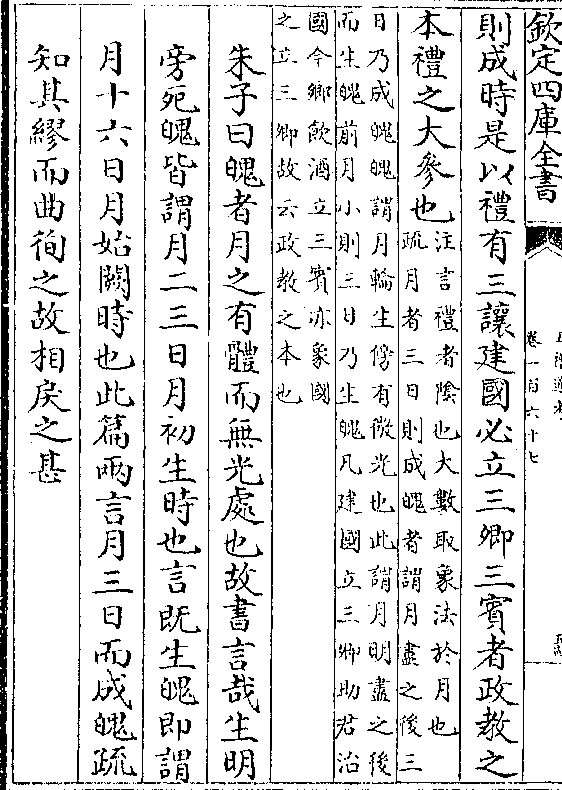 欽定四庫全書
卷一百六十七
則成時是以禮有三讓建國必立三卿三賓者政教之
本禮之大參也
注言禮者陰也大數取象法於月也
疏月者三日則成魄者謂月盡之後三
日乃成魄魄謂月輪生傍有微光也此謂月明盡之後
而生魄前月小則三日乃生魄凡建國立三卿助君治
國今鄉飲酒立三賓亦象國
之立三卿故云政教之本也
朱子曰魄者月之有體而無光處也故書言哉生明
旁死魄皆謂月二三日月初生時也言既生魄即謂
月十六日月始闕時也此篇兩言月三日而成魄疏
知其繆而曲徇之故相戾之甚